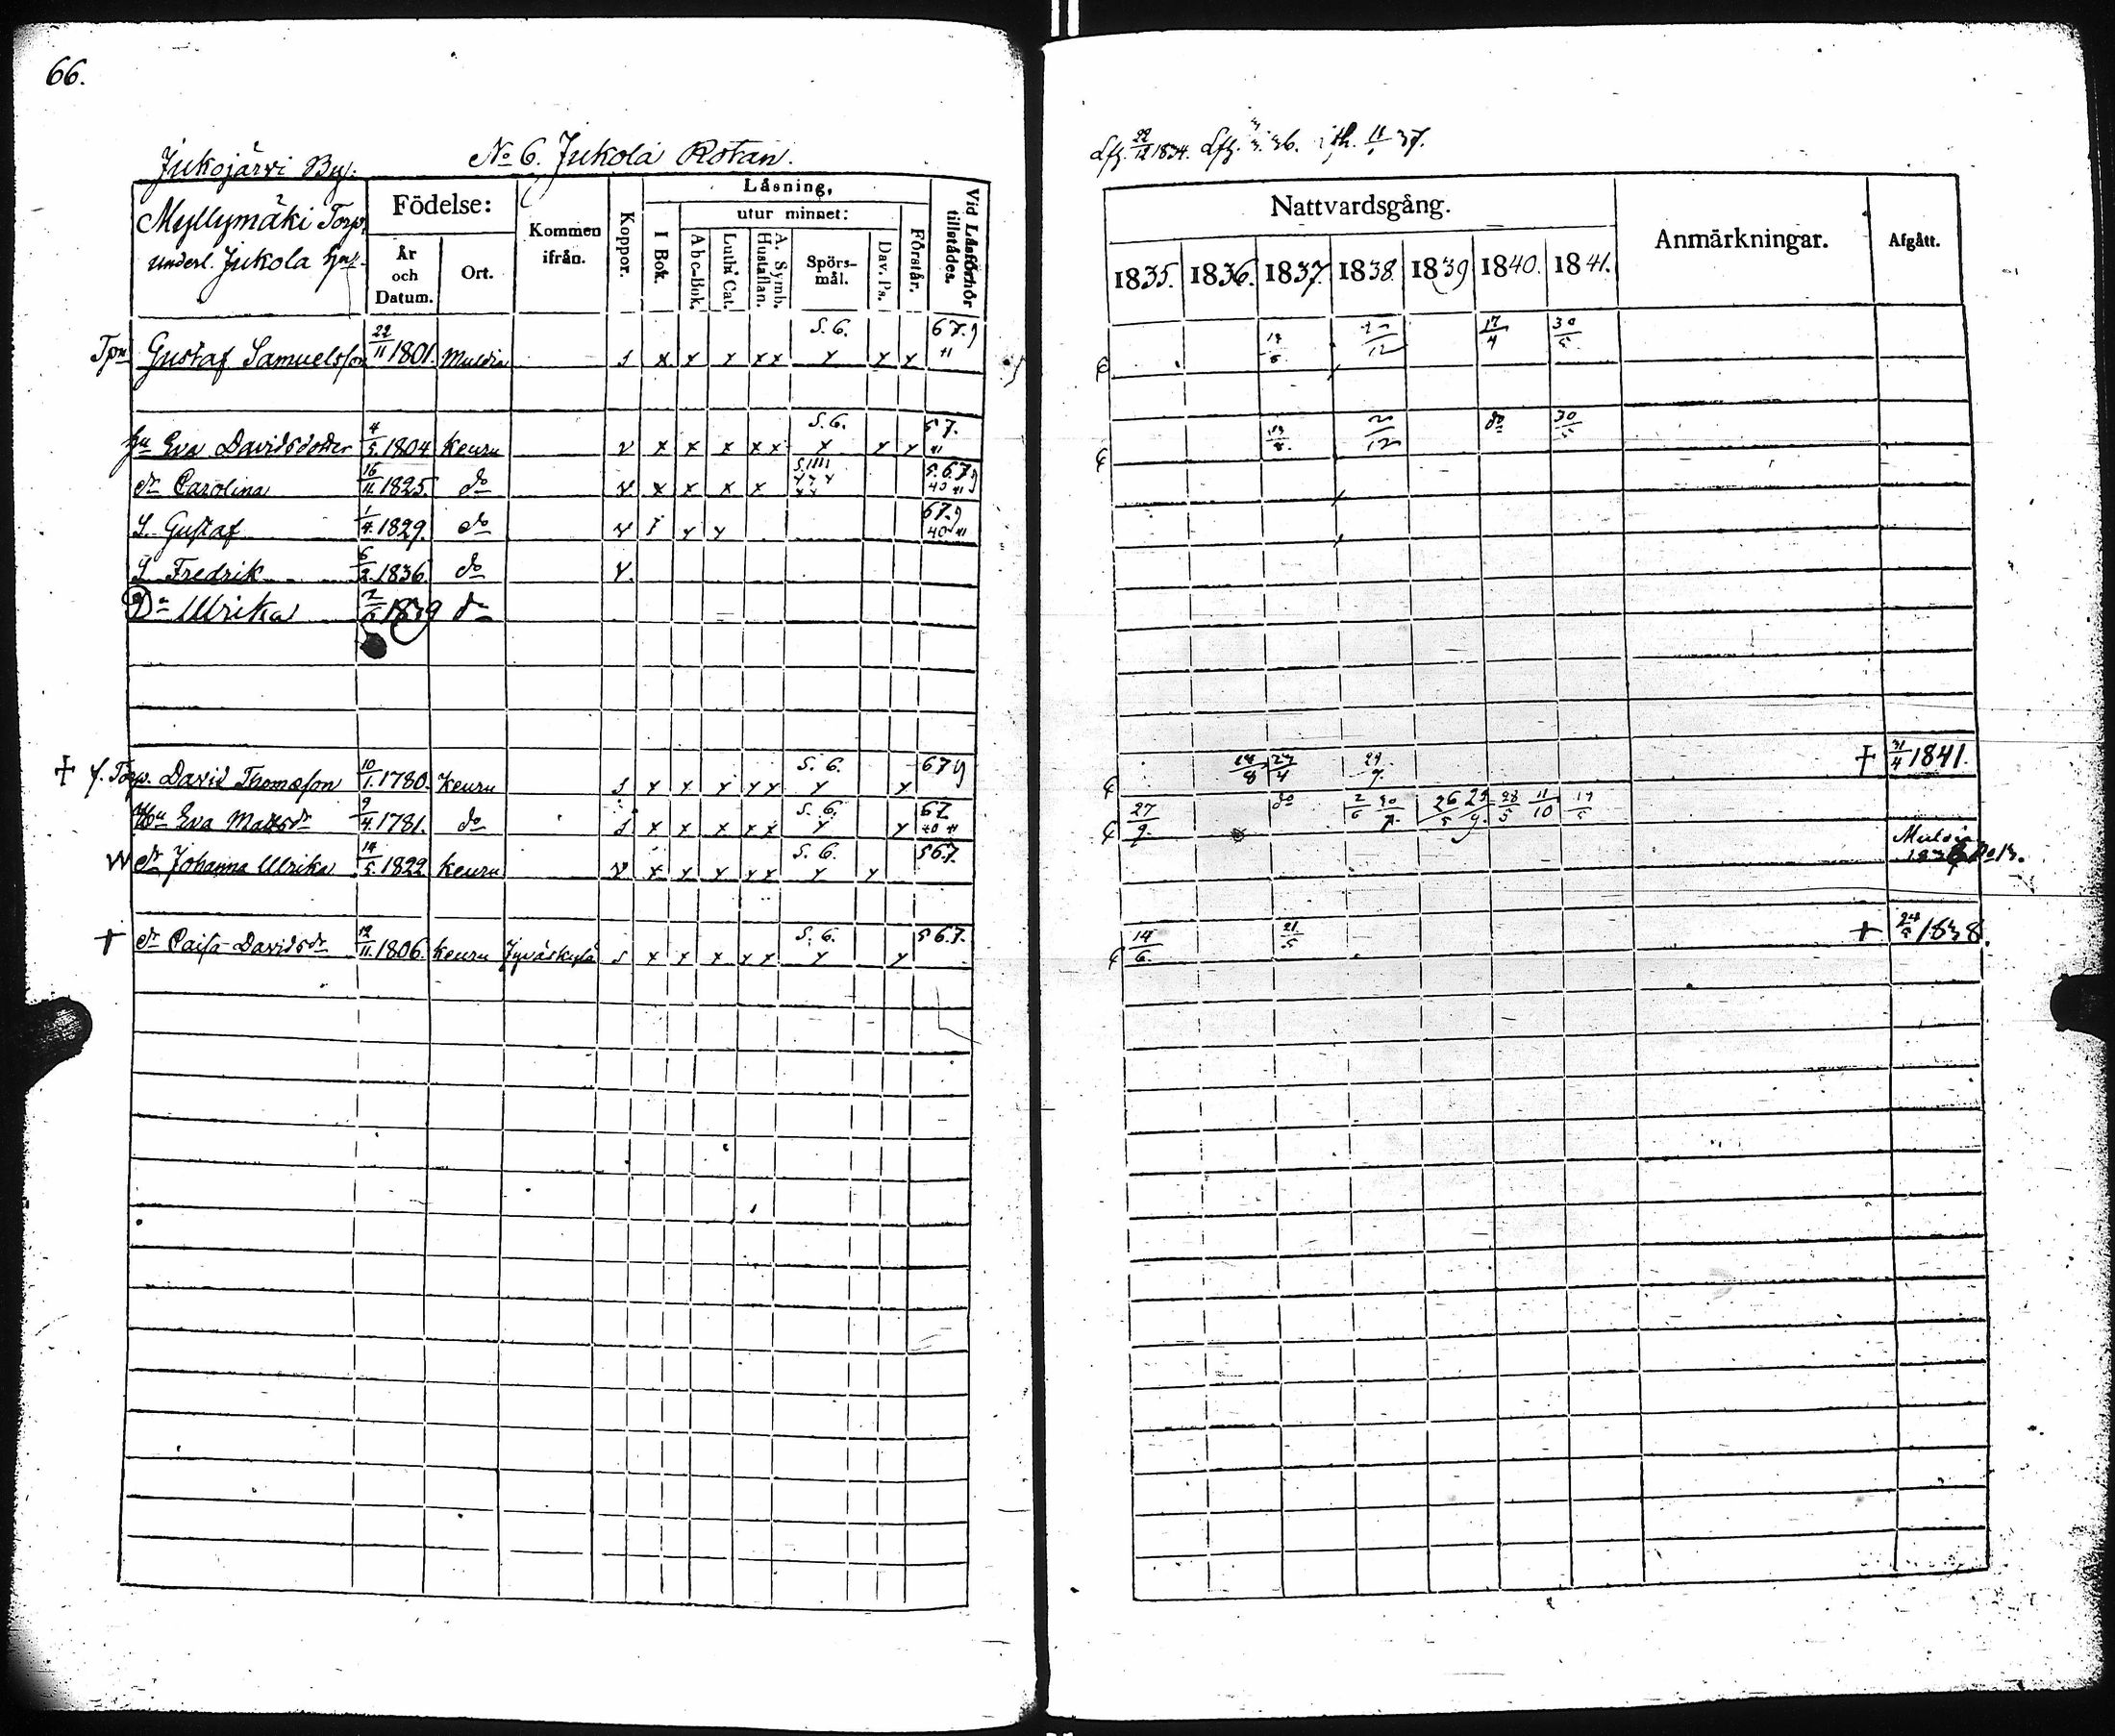 66.
Jukojärvi By.
No 6. Jukola Rotan.
Myllymäki Torp.
underl. Jukola
Födelse:
År och Datum.
Ort.
Kommen ifrån.
Koppor.
Läsning,
I Bok.
utur minnet:
Abc-Bok.
Luthi Cat.
A. Symb. Hustaflan.
Spörs-mål.
Dav. Ps.
Förstår.
Vid Läsförhör tillstådes.
Gustaf Samuelsson 22/11 1801. Muldia s x x x x x S. 6. x x x 6 7. 9 41
hu Eva Davidsdotter 4/5. 1804 Keuru v x x x x x S. 6. x x x 41
dr Carolina 16/11. 1825. do v x x x x 5. 6 7 9 40 41
S. Gustaf 1/4. 1829. do v 67. 9 40 41
S Fredrik 6/2. 1836. do v
Dr Ulrika 2/6 1839 do
+ f. Torp. David Thomasson 10/1. 1780. Keuru s x x x x x S. 6. x x 6 7 9
Eva Mattsdr 9/4. 1781. do s x x x x x S. 6. x x 67. 40 41
dr Johanna Ulrika 14/5. 1822 Keuru v x x x x x S. 6. x x 5 6 7.
+ dr Caisa Davidsdr 12/11. 1806. Keuru Jyväskylä s x x x x x S. 6. x x 5 6 7.
22/12 1834.
Nattvardsgång.
Anmärkningar.
Afgått.
1835. 1836. 1837. 1838. 1839 1840. 1841.
17/4 30/5
do 30/5
24/4 + 1841.
27/9. do 26/5 28/5 11/10
Muldia
14/6. 21/5 + 1838.